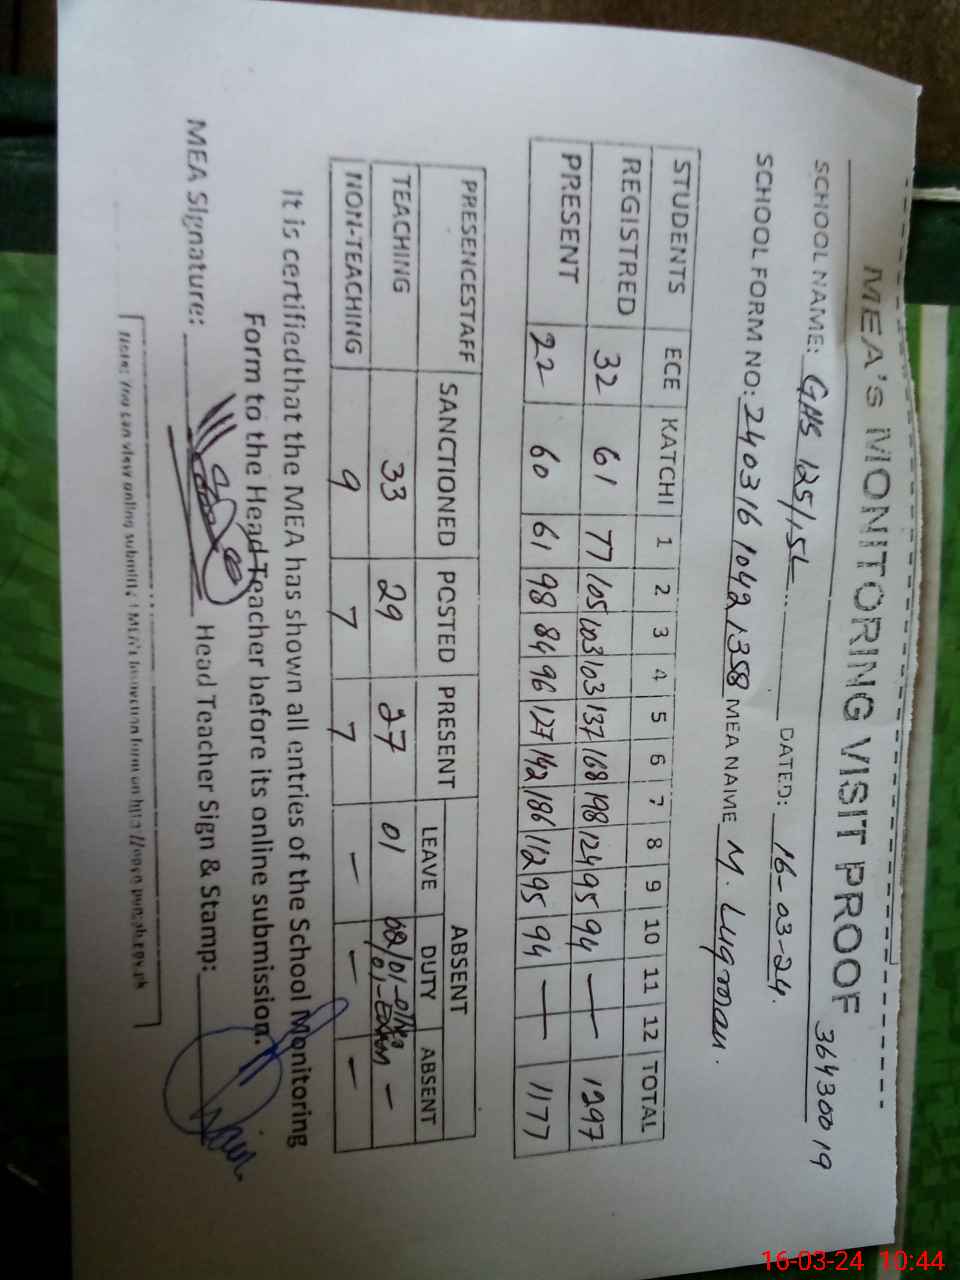 MEA'S MONITORING VISIT PROOF
36430019
SCHOOL NAME: GHS 125/15L DATED: 16-03-24.
SCHOOL FORM NO: 24031610421358 MEA NAME M. Luqman.
STUDENTS ECE KATCHI 1 2 3 4 5 6 7 8 9 10 11 12 TOTAL
REGISTRED 32 61 77 105 103 103 137 168 198 124 95 94 — 1297
PRESENT 22 60 61 98 84 96 127 142 186 112 95 94 — 1177
PRESENCESTAFF SANCTIONED POSTED PRESENT ABSENT
LEAVE DUTY ABSENT
TEACHING 33 29 27 01 02/01- 01-Exam –
NON-TEACHING 9 7 7 – – –
It is certifiedthat the MEA has shown all entries of the School Monitoring
Form to the Head Teacher before its online submission.
MEA Signature: Head Teacher Sign & Stamp:
Note: You can view online submitted MEA's inspection form on http://open.punjab.gov.pk
16-03-24 10:44